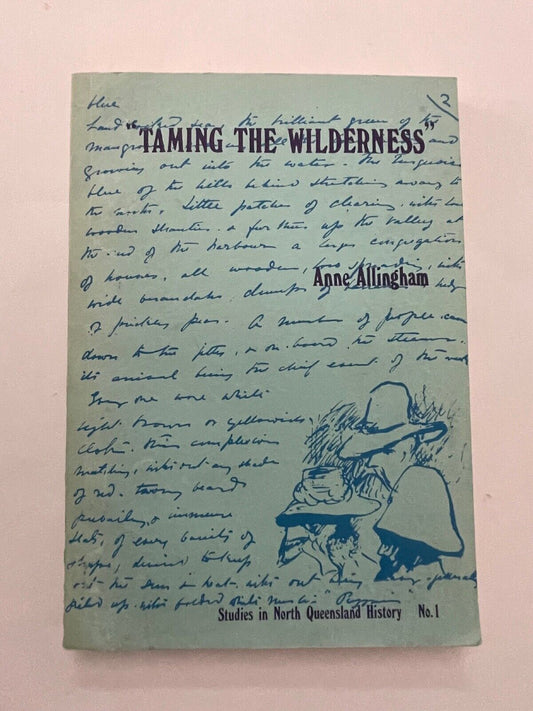 2
blue
the brilliant green of the
"TAMING THE WILDERNESS"
and
growing out into the water - the turquoise
blue of the hills behind stretching away to
the north, little patches of clearing with low
wooden shanties & further up the valley at
the end of the harbour a large congregation
of houses, all wooden, low spreading, with
Anne Allingham
wide verandahs, clumps of hedge
of prickly pear. A number of people came
down to the jetty, & on board the steamer
its arrival being the chief event of the week
Every one wore white
light browns or yellowish
cloth. Their complexions
matching, without any shade
of red. tawny beards
prevailing & immense
hats, of every variety of
shape, desired to keep
out the sun in heat, without being generally
piled up with folded white muslin"
Studies in North Queensland History No.1